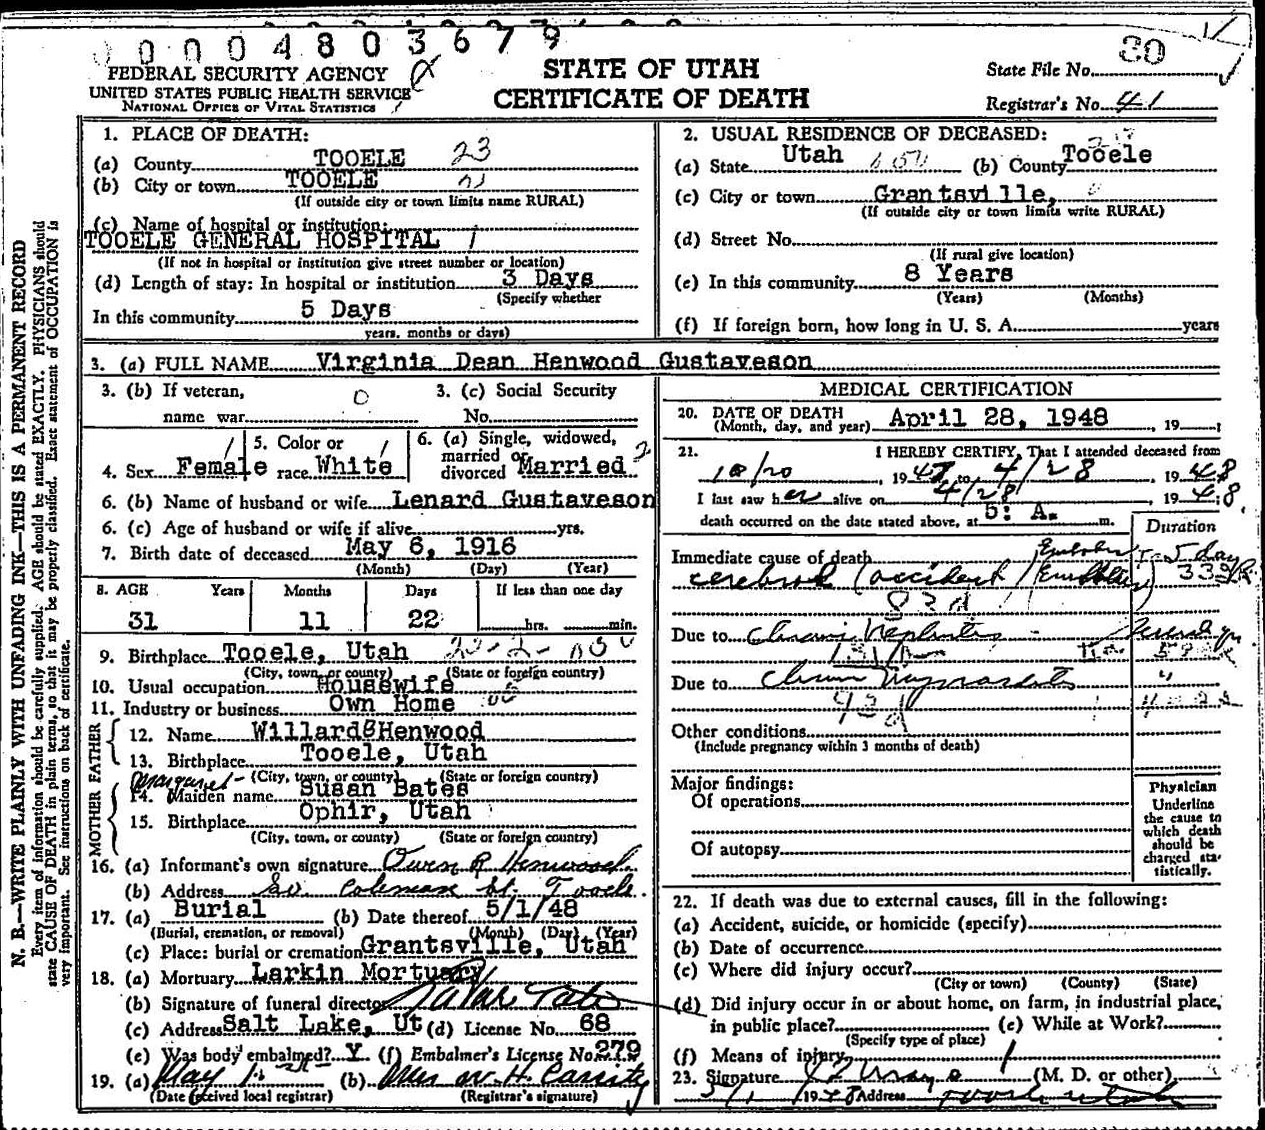 0 0 0 0 4 8 0 3 6 7 9
FEDERAL SECURITY AGENCY
UNITED STATES PUBLIC HEALTH SERVICE
NATIONAL OFFICE OF VITAL STATISTICS
STATE OF UTAH
CERTIFICATE OF DEATH
State File No. 80
Registrar's No. 41
N. B.—WRITE PLAINLY WITH UNFADING INK—THIS IS A PERMANENT RECORD
Every item of information should be carefully supplied. AGE should be stated EXACTLY. PHYSICIANS should
state CAUSE OF DEATH in plain terms, so that it may be properly classified. Exact statement of OCCUPATION is
very important. See instructions on back of certificate.
1. PLACE OF DEATH:
(a) County TOOELE 23
(b) City or town TOOELE
(If outside city or town limits name RURAL)
(c) Name of hospital or institution:
TOOELE GENERAL HOSPITAL 1
(If not in hospital or institution give street number or location)
(d) Length of stay: In hospital or institution 3 Days
(Specify whether
In this community 5 Days
years, months or days)
2. USUAL RESIDENCE OF DECEASED:
(a) State Utah (b) County Tooele
(c) City or town Grantsville,
(If outside city or town limits write RURAL)
(d) Street No.
(If rural give location)
(e) In this community 8 Years
(Years) (Months)
(f) If foreign born, how long in U. S. A. years
3. (a) FULL NAME Virginia Dean Henwood Gustaveson
3. (b) If veteran, 0 3. (c) Social Security
name war No.
4. Sex Female 5. Color or race White 6. (a) Single, widowed, married or divorced Married 2
6. (b) Name of husband or wife Lenard Gustaveson
6. (c) Age of husband or wife if alive yrs.
7. Birth date of deceased May 6, 1916
(Month) (Day) (Year)
8. AGE Years Months Days If less than one day
31 11 22 hrs. min.
9. Birthplace Tooele, Utah
(City, town, or county) (State or foreign country)
10. Usual occupation Housewife
11. Industry or business Own Home
FATHER
12. Name Willard B Henwood
13. Birthplace Tooele, Utah
(City, town, or county) (State or foreign country)
MOTHER
Margaret -
14. Maiden name Susan Bates
15. Birthplace Ophir, Utah
(City, town, or county) (State or foreign country)
16. (a) Informant's own signature Owen R Henwood
(b) Address So. Coleman St. Tooele.
17. (a) Burial (b) Date thereof 5/1/48
(Burial, cremation, or removal) (Month) (Day) (Year)
(c) Place: burial or cremation Grantsville, Utah
18. (a) Mortuary Larkin Mortuary
(b) Signature of funeral director
(c) Address Salt Lake, Ut (d) License No. 68
(e) Was body embalmed? Y (f) Embalmer's License No. 279
19. (a) May 1 (b) Mrs W. H. Cassity
(Date received local registrar) (Registrar's signature)
MEDICAL CERTIFICATION
20. DATE OF DEATH April 28, 1948, 19
(Month, day, and year)
21. I HEREBY CERTIFY, That I attended deceased from
10/20, 1947, to 4/28, 1948
I last saw her alive on 4/28, 1948
death occurred on the date stated above, at 5: A. m.
Duration
Immediate cause of death 5 day
cerebral (accident) (Embolus)
Due to Chronic Nephritis
Due to Chronic Myocarditis "
Other conditions
(Include pregnancy within 3 months of death)
Major findings:
Of operations
Of autopsy
Physician
Underline
the cause to
which death
should be
charged sta-
tistically.
22. If death was due to external causes, fill in the following:
(a) Accident, suicide, or homicide (specify)
(b) Date of occurrence
(c) Where did injury occur?
(City or town) (County) (State)
(d) Did injury occur in or about home, on farm, in industrial place,
in public place? (e) While at Work?
(Specify type of place)
(f) Means of injury
23. Signature (M. D. or other)
5/1 1948 Address Tooele Utah